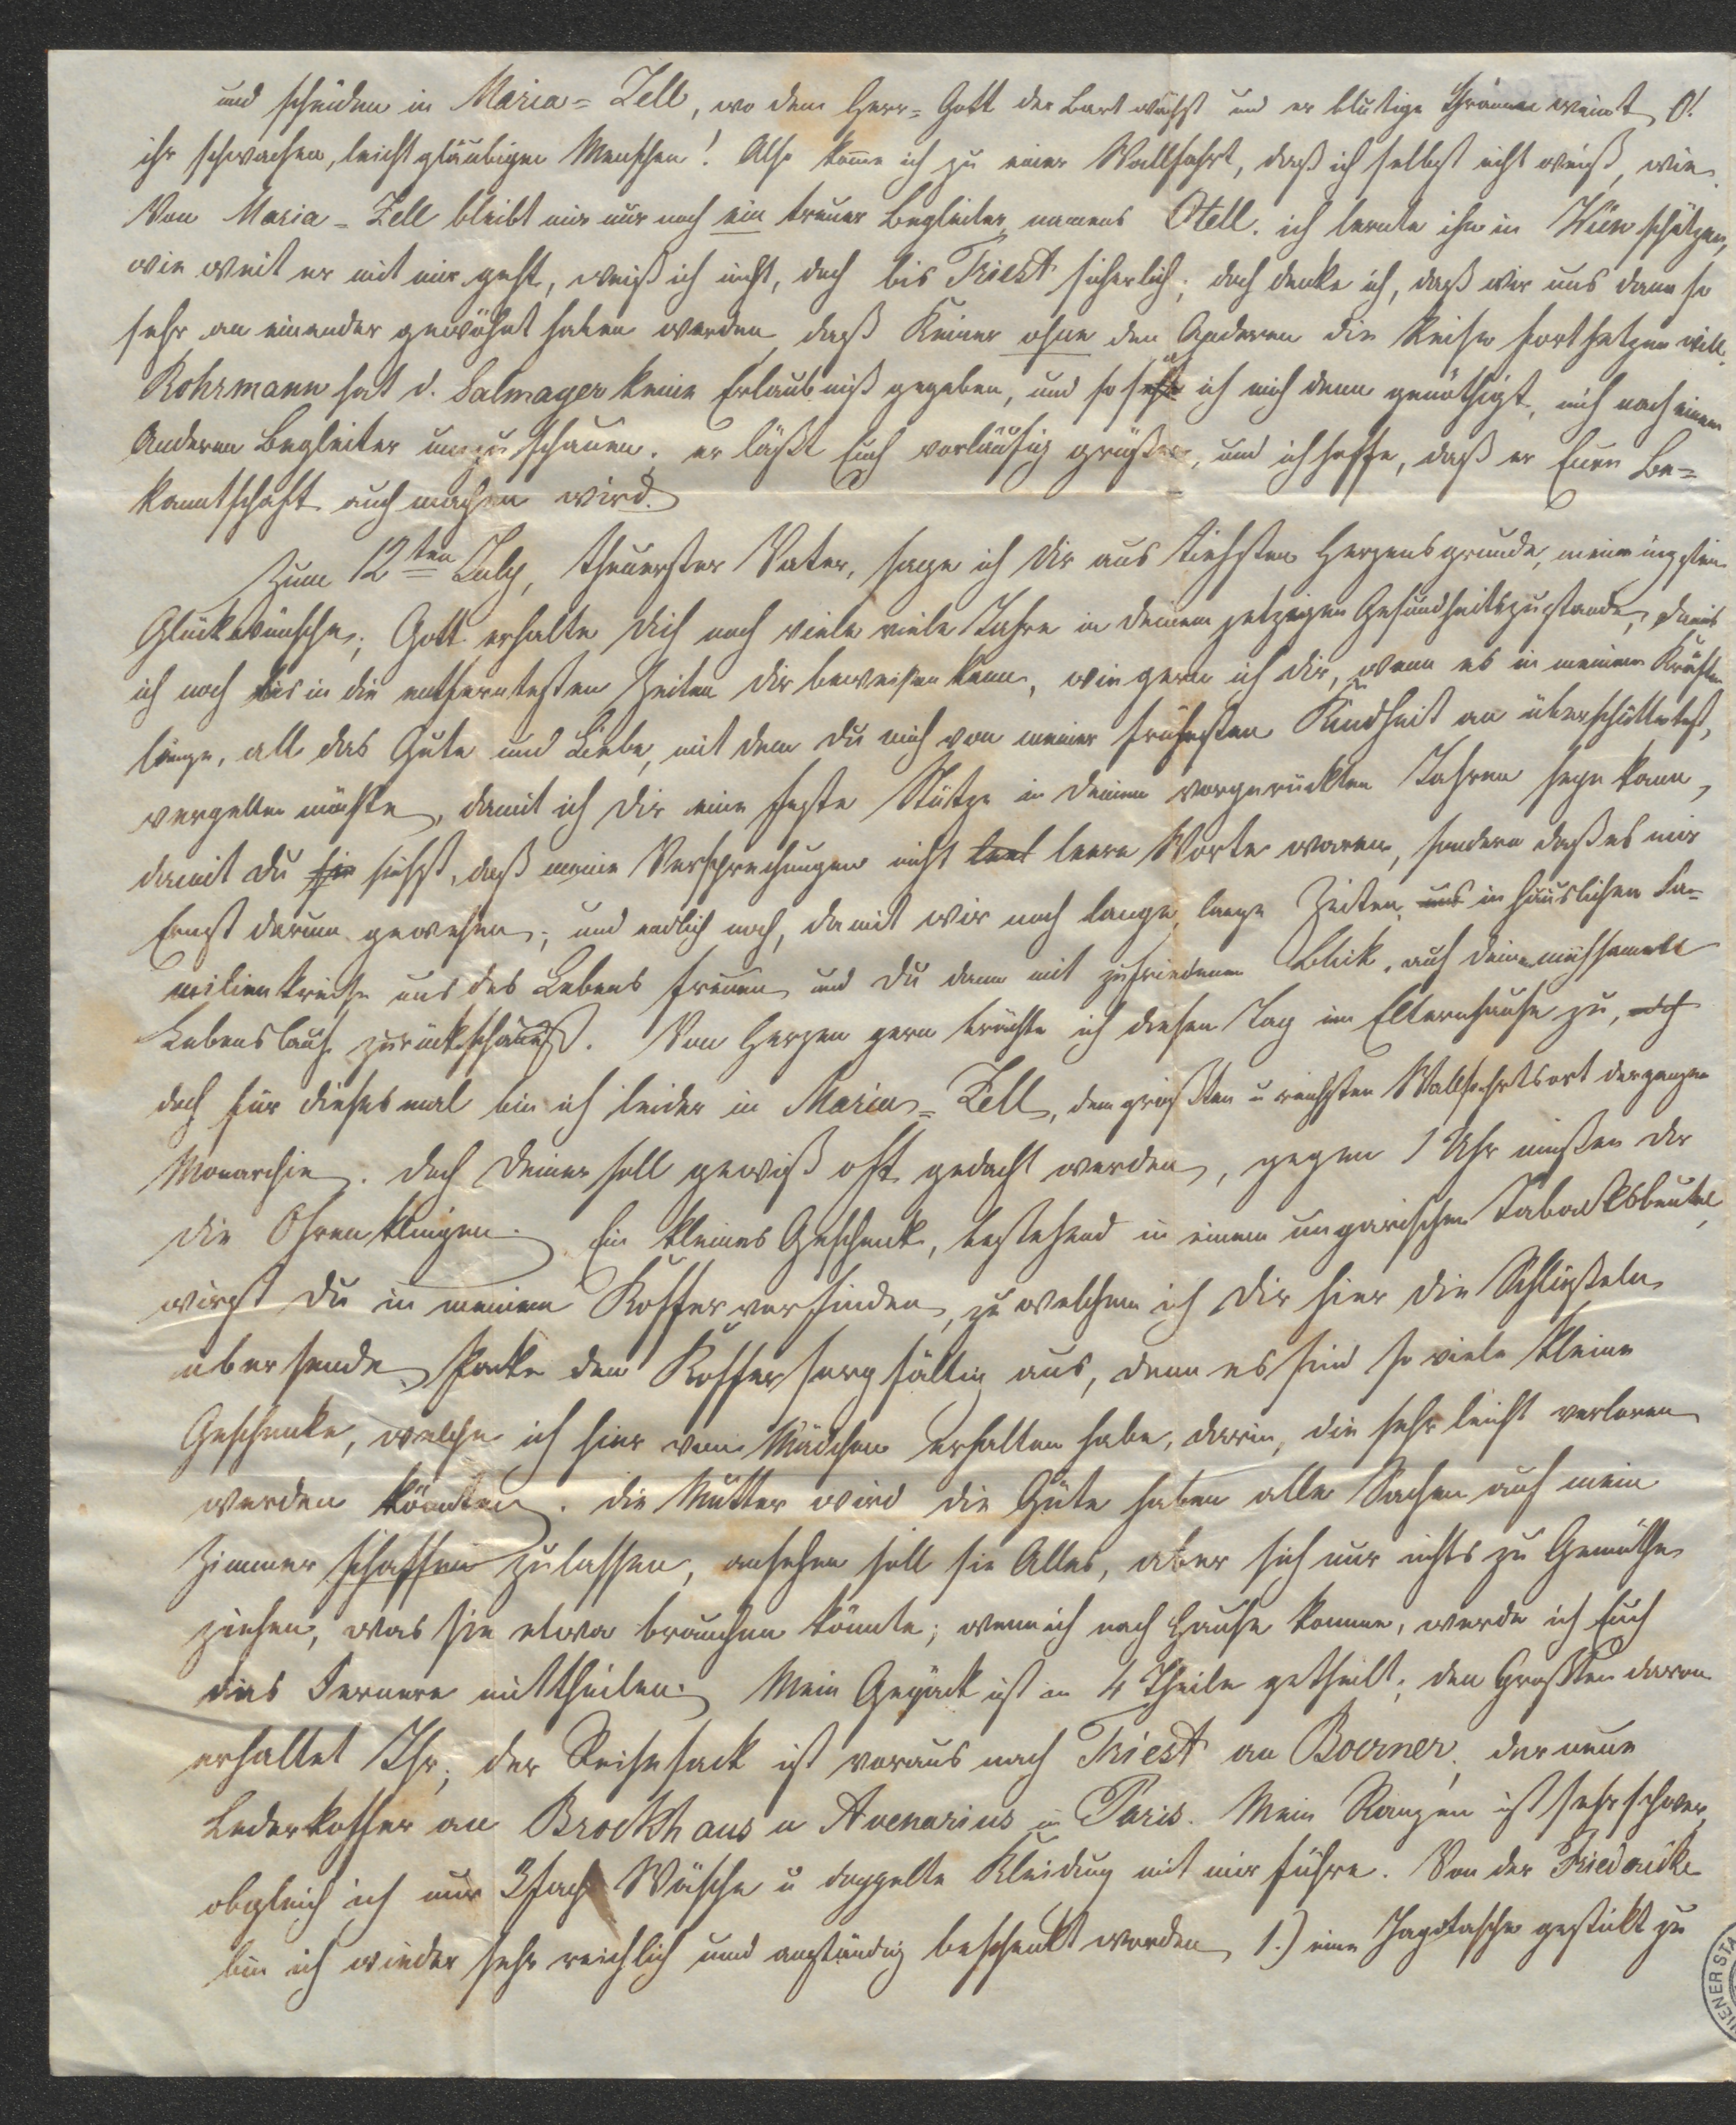 und scheiden in Maria=Zell, wo dem Herr=Gott der Bart wächst und er blutige Thränen weint O!
ihr schwachen, leichtgläubigen Menschen! Also komme ich zu einer Wallfahrt, daß ich selbst nicht weiß, wie.
Von Maria=Zell bleibt mir nur noch ein treuer Begleiter, namens Otell. ich lernte ihn in Wien schätzen,
wie weit er mit mir geht, weiß ich nicht, doch bis Triest sicherlich; doch denke ich, daß wir uns dann so
sehr an einander gewöhnt haben werden daß Keiner ohne den Anderen die Reise fortsetzen will.
Rohrmann hat d. Salmayer keine Erlaubniß gegeben, und so sah ich mich denn genöthigt, mich nach einem
Anderen Begleiter umzuschauen. er läßt Euch vorläufig grüßen, und ich hoffe, daß er Eure Be=
kanntschaft auch machen wird.
Zum 12ten July, theuerster Vater, sage ich Dir aus tiefstem Herzensgrunde, meine innigsten
Glückwünsche; Gott erhalte Dich noch viele viele Jahre in Deinem jetzigen Gesundheitszustande, damit
ich noch bis in die entferntesten Zeiten Dir beweisen kann, wie gern ich Dir, wenn es in meinen Kräften
läge, all das Gute und Liebe, mit dem Du mich von meiner frühesten Kindheit an überschüttetest,
vergelten möchte, damit ich Dir eine feste Stütze in Deinen vorgerückten Jahren seyn kann,
damit Du siehst, daß meine Versprechungen nicht leere Worte waren, sondern daß es mir
Ernst darum gewesen; und endlich noch, damit wir noch lange, lange Zeiten, uns in häuslichen Fa=
milienkreise uns des Lebens freuen und Du dann mit zufriedenem Blick, auf Deine mühsamen
Lebenslauf zurückschaust. Von Herzen gern brächte ich diesen Tag im Elternhause zu,
doch für dieses mal bin ich leider in Maria=Zell, dem größten u reichsten Wallfahrtsort der ganzen
Monarchie. Doch Deiner soll gewiß oft gedacht werden, gegen 1 Uhr müßen Dir
die Ohren klingen. Ein kleines Geschenk, bestehend in einem ungarischen Tabacksbeutel
wirst Du in meinem Koffer vorfinden, zu welchem ich Dir hier die Schlüßeln
übersende. Packe den Koffer sorgfältig aus, denn es sind so viele kleine
Geschenke, welche ich hier von Mädchen erhalten habe, darin, die sehr leicht verloren
werden könnten. Die Mutter wird die Güte haben alle Sachen auf mein
Zimmer schaffen zu lassen, ansehen soll sie Alles, aber sich nur nichts zu Gemüthe
ziehen, was sie etwa brauchen könnte; wenn ich nach Hause komme, werde ich Euch
das Fernere mittheilen. Mein Gepäck ist in 4 Theile getheilt; den Größten davon
erhaltet Ihr; der Reisesack ist voraus nach Triest an Boerner, der neue
Lederkoffer an Brockhaus u Avenarius in Paris. Mein Ranzen ist sehr schwer,
obgleich ich nur 3fach Wäsche u doppelte Kleidung mit mir führe. Von der Friedricke
bin ich wieder sehr reichlich und anständig beschenkt worden 1.) eine Jagdtasche gestickt zu
WIENER STA